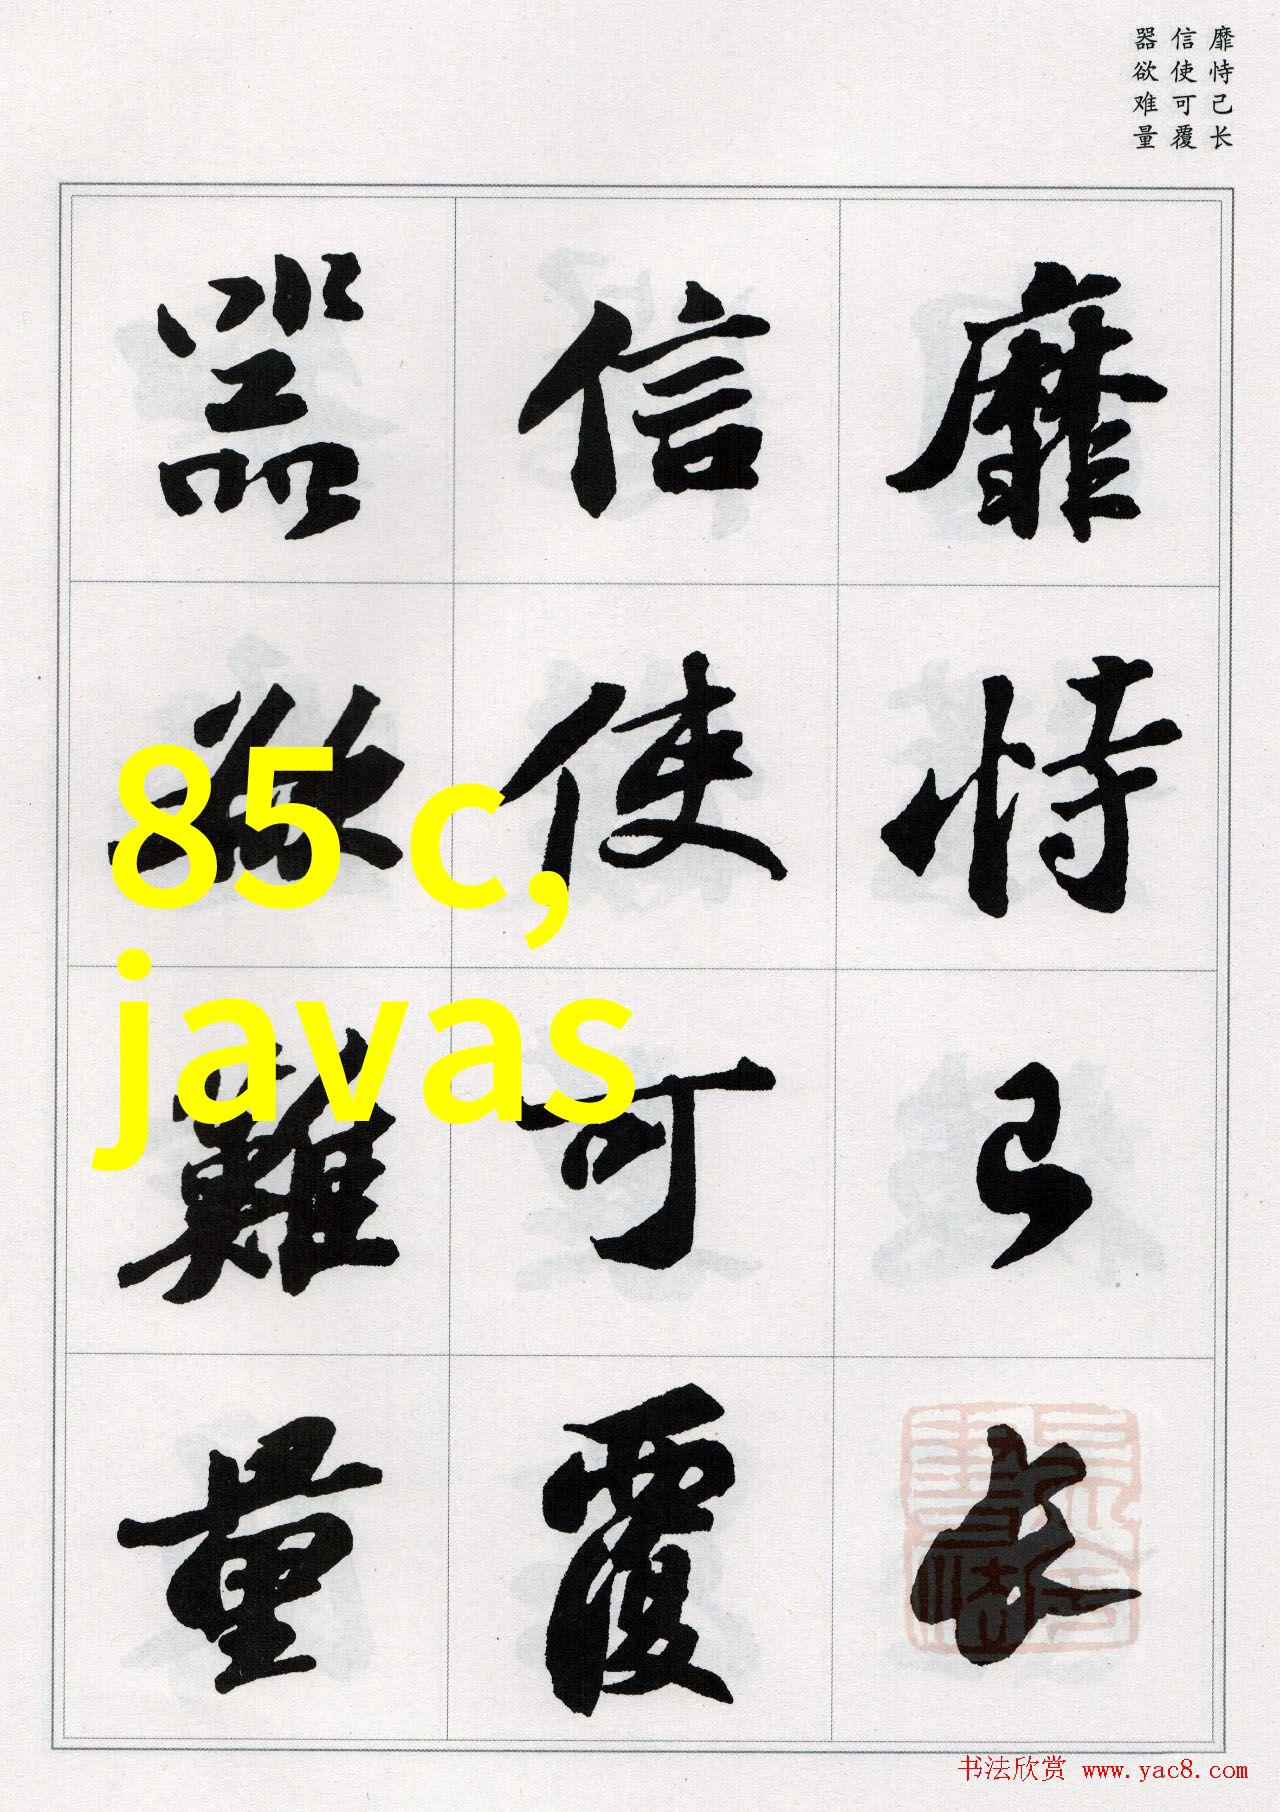 靡恃己长
信使可覆
器欲难量
靡恃己長
信使可覆
器欲難量
85 c,
javas
书法欣赏 www.yac8.com